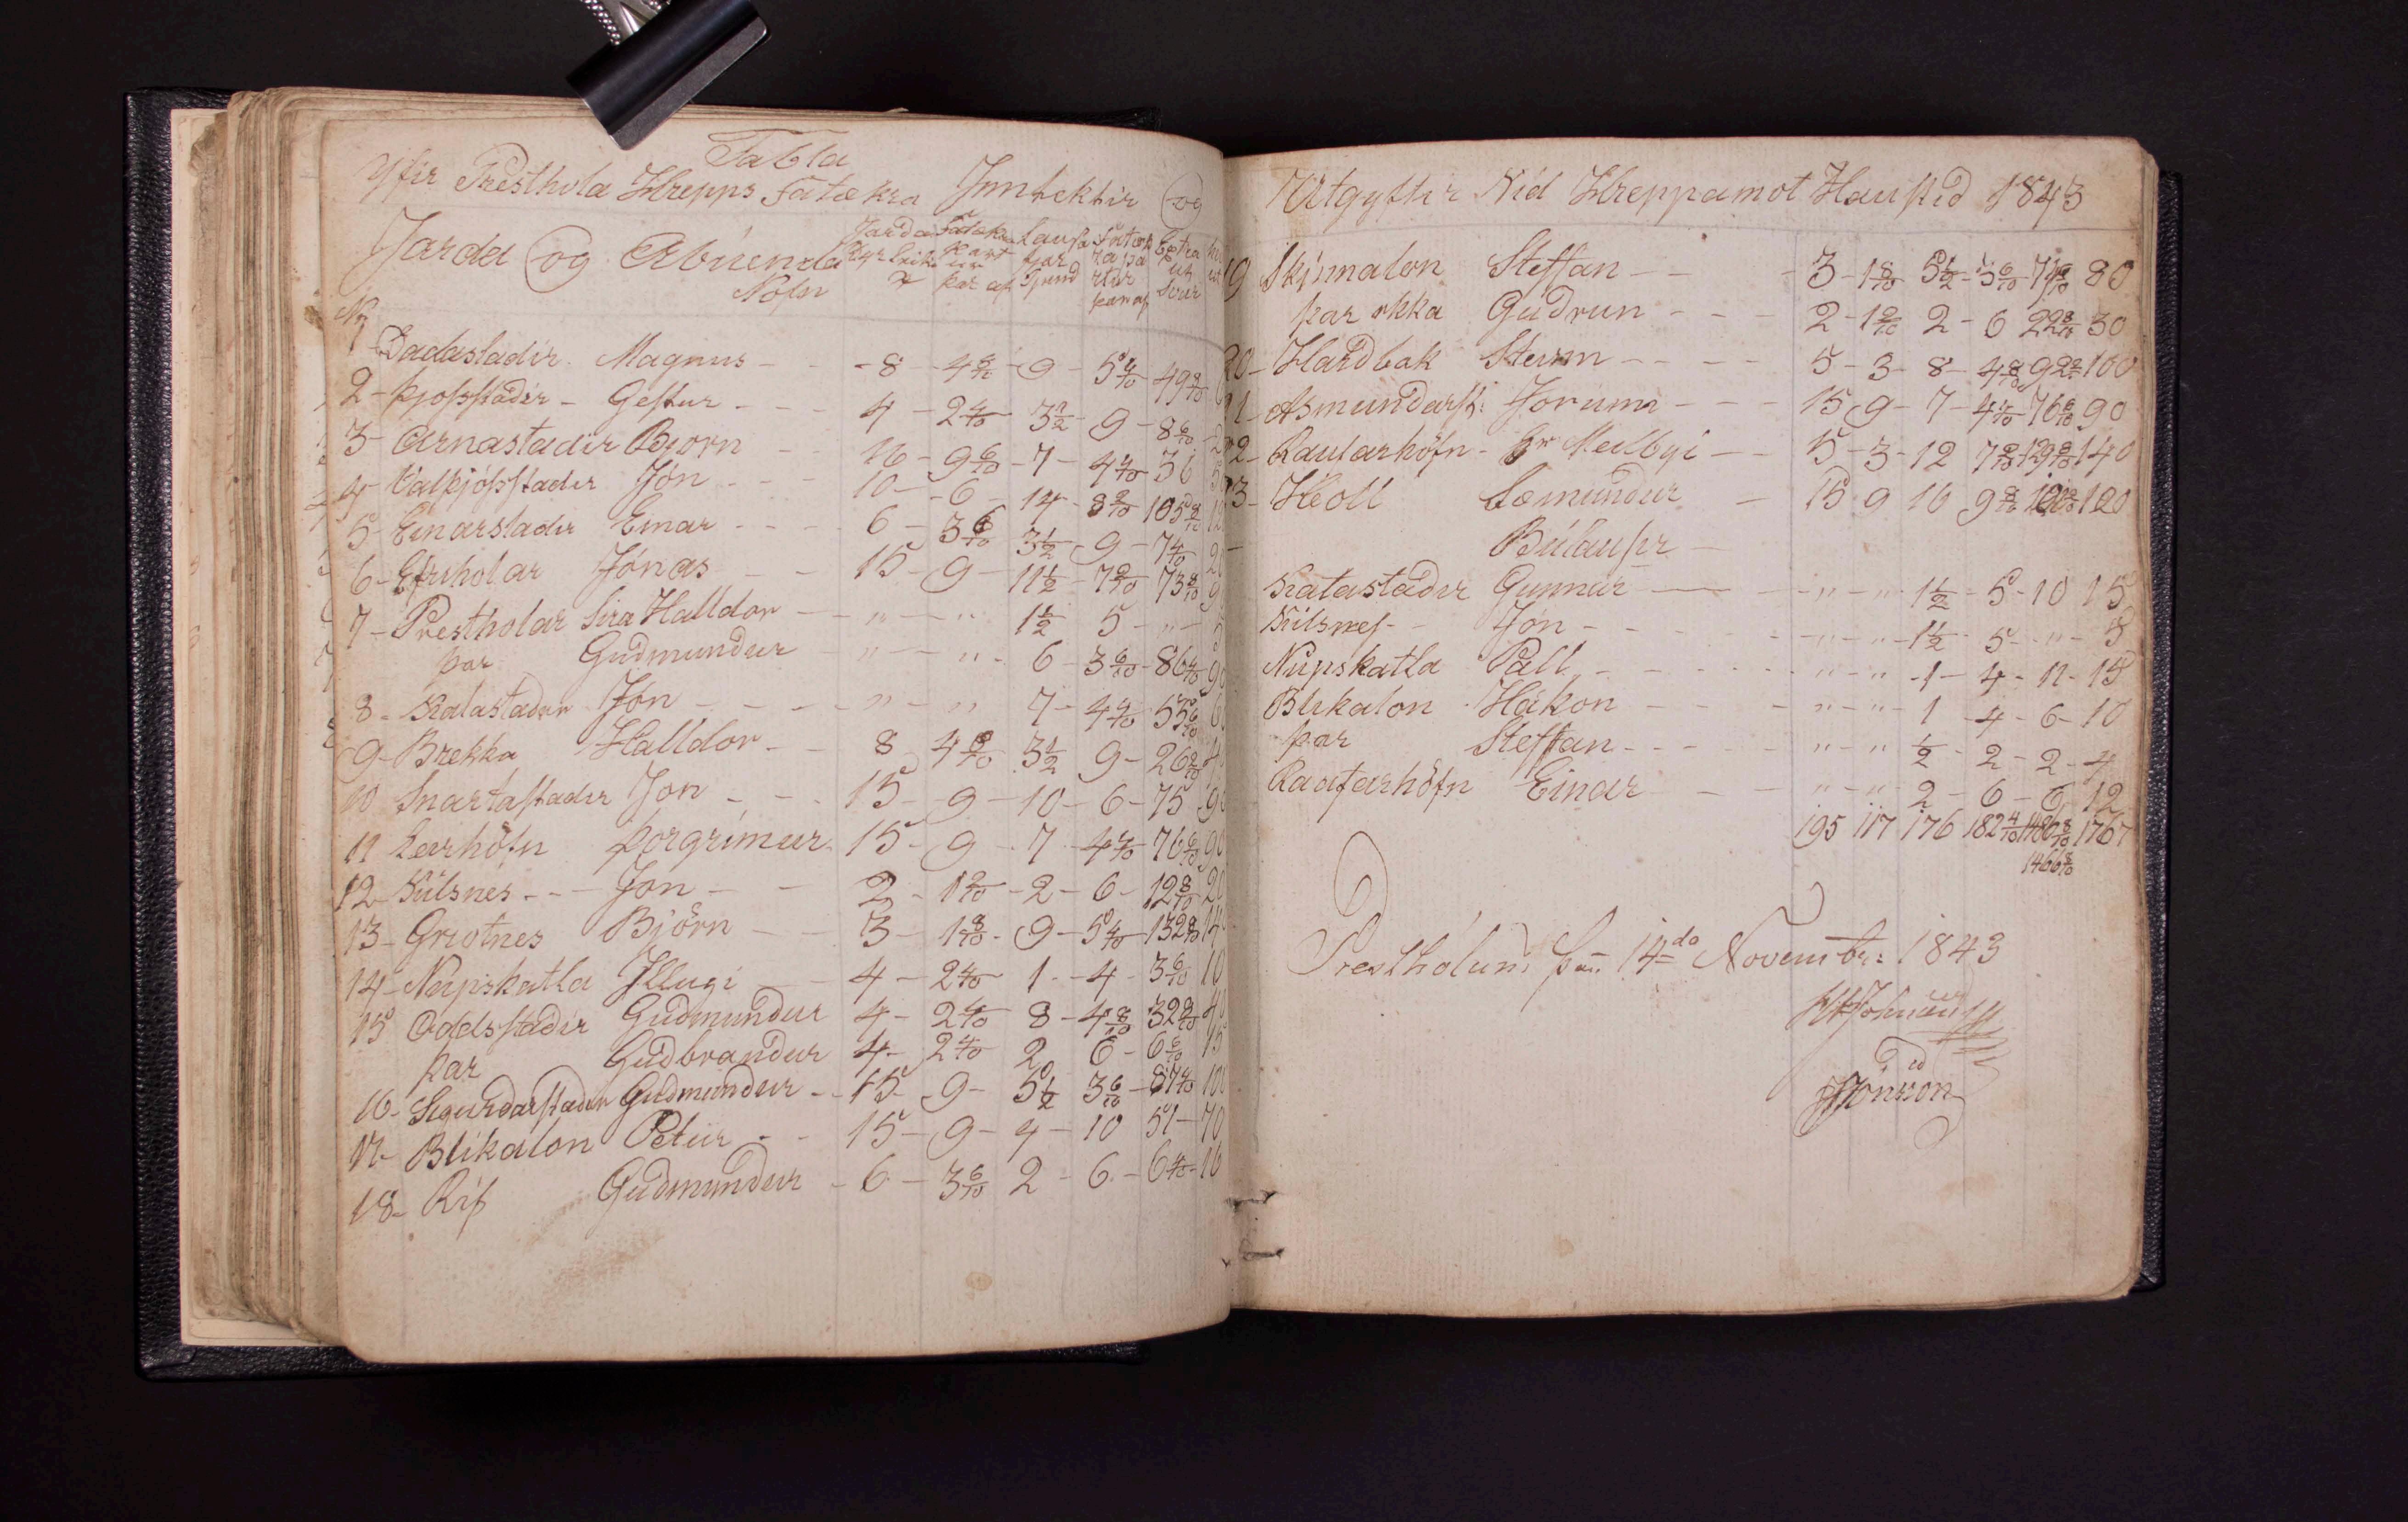 Tabla
Yfir Presthola Hrepps Fatækra Inntektir og
Jarda og Abúenda Nöfn
No
1 Dadastadir Magnus - - 8 - 4 8/10 - 9 - 5 4/10 - 49 8/10
2 - Þjofsstadir - Gestur - - - 4 - 2 4/10 3 1/2 - 9 - 8 6/10
3 - Arnastadir Bjorn - - 16 - 9 6/10 - 7 - 4 2/10 36
4 - Valþjófsstadir Jón - - - 10 - 6 - 14 - 8 2/10 105 8/10
5 - Einarstadir Einar - - - - 6 - 3 6/10 3 1/2 - 9 - 7 4/10 20
6 - Efriholar Jónas - - 15 - 9 - 11 1/2 - 7 2/10 73 8/10
7 - Prestholar Sira Halldor - - " - " - 1 1/2 5 - " - 5
þar Gudmundur - " - " - 6 - 3 6/10 - 86 4/10 90
8 - Katastadir Jón - - - - " - " 7 - 4 2/10 55
9 - Brekka Halldor - - 8 4 8/10 3 1/2 9 - 26 2/10
10 Snartastadir Jon - - - 15 - 9 - 10 - 6 - 75 - 90
11 Leirhöfn Þorgrímur 15 - 9 - 7 - 4 2/10 76 6/10 90
12 - Kúlsnes - - - Jon - - 2 - 1 2/10 - 2 - 6 - 12 8/10 20
13 - Griotnes Björn - - 3 - 1 8/10 - 9 - 5 4/10 - 132 8/10
14 - Nupskatla Illugi - - 4 - 2 4/10 1 - 4 - 3 6/10 10
15 Oddsstadir Gudmundur 4 - 2 4/10 8 - 4 8/10 32 8/10 40
þar Gudbrandur 4 - 2 4/10 2 6 - 6 6/10 15
16 - Sigurdarstadir Gudmundur - - 15 - 9 - 5 1/2 3 6/10 - 87 4/10 100
17 - Blikalon Petur - - 15 - 9 - 4 - 10 51 - 70
18 - Rif Gudmundur - 6 - 3 6/10 2 - 6 - 6 4/10 - 16
Utgyftir Vid Hreppamot Haustid 1843
19 Skinnalon Steffan - - - 3 - 1 8/10 5 1/2 - 3 6/10 - 80
þar ekka Gudrun - - - 2 - 1 2/10 2 - 6 22 8/10 30
20 - Hardbak Steinn - - - - 5 - 3 - 8 - 4 8/10 92 2/10 100
21 - Asmundarst: Jorunn - - - 15 9 - 7 - 4 4/10 76 6/10 90
22 - Raufarhöfn - Hr Meilbyi - - 5 - 3 - 12 7 2/10 129 8/10 140
23 - Höll Sæmundur - 15 9 16 9 6/10 120
Búlausir -
Katastadir Gunnar - - " - " - 1 1/2 - 5 - 10 15
Kúlsnes - - Jón - - - - - " - " - 1 1/2 - 5 - " - 5
Nupskatla Páll - - - - - " - " - 1 - 4 - 11 - 15
Blikalon Hákon - - - - " - " - 1 - 4 - 6 - 10
þar Steffan - - - - - " - " 1/2 - 2 - 2 - 4
Raufarhöfn Einar - - - " - " - 2 - 6 - 6 12
195 117 176 182 4/10 1767
1466 8/10
Prestholum þan 14da Novembr: 1843
JJónsson